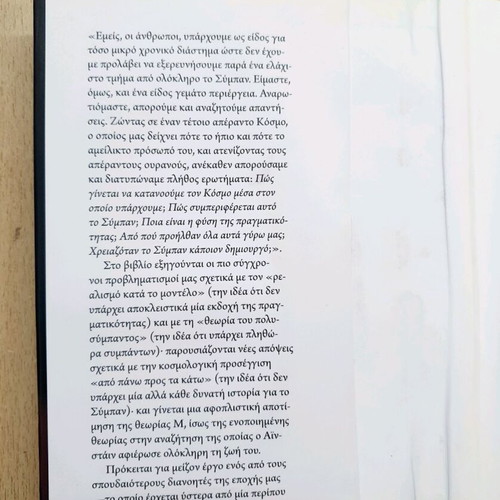 «Εμείς, οι άνθρωποι, υπάρχουμε ως είδος για
τόσο μικρό χρονικό διάστημα ώστε δεν έχου-
με προλάβει να εξερευνήσουμε παρά ένα ελάχι-
στο τμήμα από ολόκληρο το Σύμπαν. Είμαστε,
όμως, και ένα είδος γεμάτο περιέργεια. Αναρω-
τιόμαστε, απορούμε και αναζητούμε απαντή-
σεις. Ζώντας σε έναν τέτοιο απέραντο Κόσμο,
ο οποίος μας δείχνει πότε το ήπιο και πότε το
αμείλικτο πρόσωπό του, και ατενίζοντας τους
απέραντους ουρανούς, ανέκαθεν απορούσαμε
και διατυπώναμε πλήθος ερωτήματα: Πώς
γίνεται να κατανοούμε τον Κόσμο μέσα στον
οποίο υπάρχουμε; Πώς συμπεριφέρεται αυτό
το Σύμπαν; Ποια είναι η φύση της πραγματικό-
τητας; Από πού προήλθαν όλα αυτά γύρω μας;
Χρειαζόταν το Σύμπαν κάποιον δημιουργό;».
Στο βιβλίο εξηγούνται οι πιο σύγχρο-
νοι προβληματισμοί μας σχετικά με τον «ρε-
αλισμό κατά το μοντέλο» (την ιδέα ότι δεν
υπάρχει αποκλειστικά μία εκδοχή της πραγ-
ματικότητας) και με τη «θεωρία του πολυ-
σύμπαντος» (την ιδέα ότι υπάρχει πληθώ-
ρα συμπάντων)· παρουσιάζονται νέες απόψεις
σχετικά με την κοσμολογική προσέγγιση
«από πάνω προς τα κάτω» (την ιδέα ότι δεν
υπάρχει μία αλλά κάθε δυνατή ιστορία για το
Σύμπαν)· και γίνεται μια αφοπλιστική αποτί-
μηση της θεωρίας Μ, ίσως της ενοποιημένης
θεωρίας στην αναζήτηση της οποίας ο Αϊν-
στάιν αφιέρωσε ολόκληρη τη ζωή του.
Πρόκειται για μείζον έργο ενός από τους
σπουδαιότερους διανοητές της εποχής μας
–το οποίο έρχεται ύστερα από μία περίπου